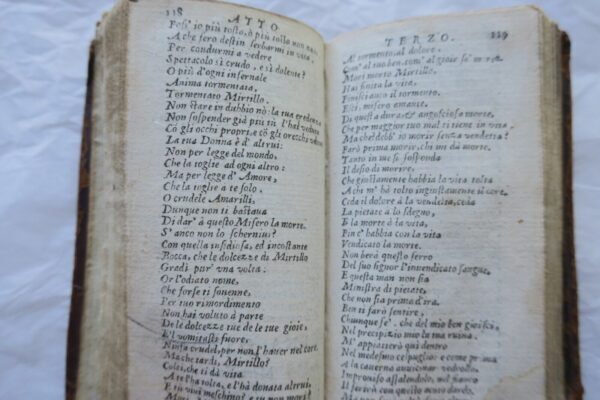 118 ATTO
Foss' io più tosto, ò più tosto non
A che fero destin serbarmi in vita
Per condurmi a vedere
Spettacolo sì crudo, e sì dolente?
O più d'ogni infernale
Anima tormentata,
Tormentato Mirtillo.
Non stare in dubbio nò: la tua credenza
Non sospender già più tù l'hai vedvta
Cò gli occhi proprij, e cò gli orecchi vdita
La tua Donna è d'altrui:
Non per legge del mondo,
Che la toglie ad ogni altro:
Ma per legge d'Amore,
Che la toglie a te solo.
O crudele Amarilli,
Dunque non ti bastaua
Di dar' à questo Misero la morte.
S'anco non lo scherniui?
Con quella insidiosa, ed incostante
Bocca, che le dolcezze di Mirtillo
Gradì pur' vna volta.
Or l'odiato nome,
Che forse ti souenne,
Per tuo rimordimento
Non hai voluto à parte
De le dolcezze tue de le tue gioie,
E'l vomitasti fuore,
Ninfa crudel, per non l'hauer nel core.
Ma che tardi, Mirtillo?
Colei, che ti dà vita
A te l'hà tolta, e l'hà donata altrui,
E tù viui meschino? e tù non mori?
TERZO. 119
Al tormento, al dolore,
Com' al tuo ben, com' al gioir se' morto.
Mori morto Mirtillo,
Hai finita la vita,
Finisci anco il tormento.
Esci, misero amante,
Di questa dura & angosciosa morte,
Che per maggior tuo mal ti tiene in vita
Ma che? debb' io morir senza vendetta?
Farò prima morir, chi mi dà morte.
Tanto in me si sospenda
Il desio di morire,
Che giustamente habbia la vita tolta
A chi m' hà tolto ingiustamente il core.
Ceda il dolore à la vendetta, ceda
La pietate à lo sdegno,
E la morte à la vita,
Fin c' habbia con la vita
Vendicato la morte.
Non beua questo ferro
Del suo signor l'inuendicato sangue,
E questa man non sia
Ministra di pietate,
Che non sia prima d'ira.
Ben ti farò sentire,
Chiunque se', che del mio ben gioisci,
Nel precipizio mio la tua ruina.
M'appiatterò quì dentro
Nel medesmo cespuglio: e come prima
A la cauerna auuicinar vedrollo,
Improuiso assalendolo, nel fianco
Il ferirò con questo acuto